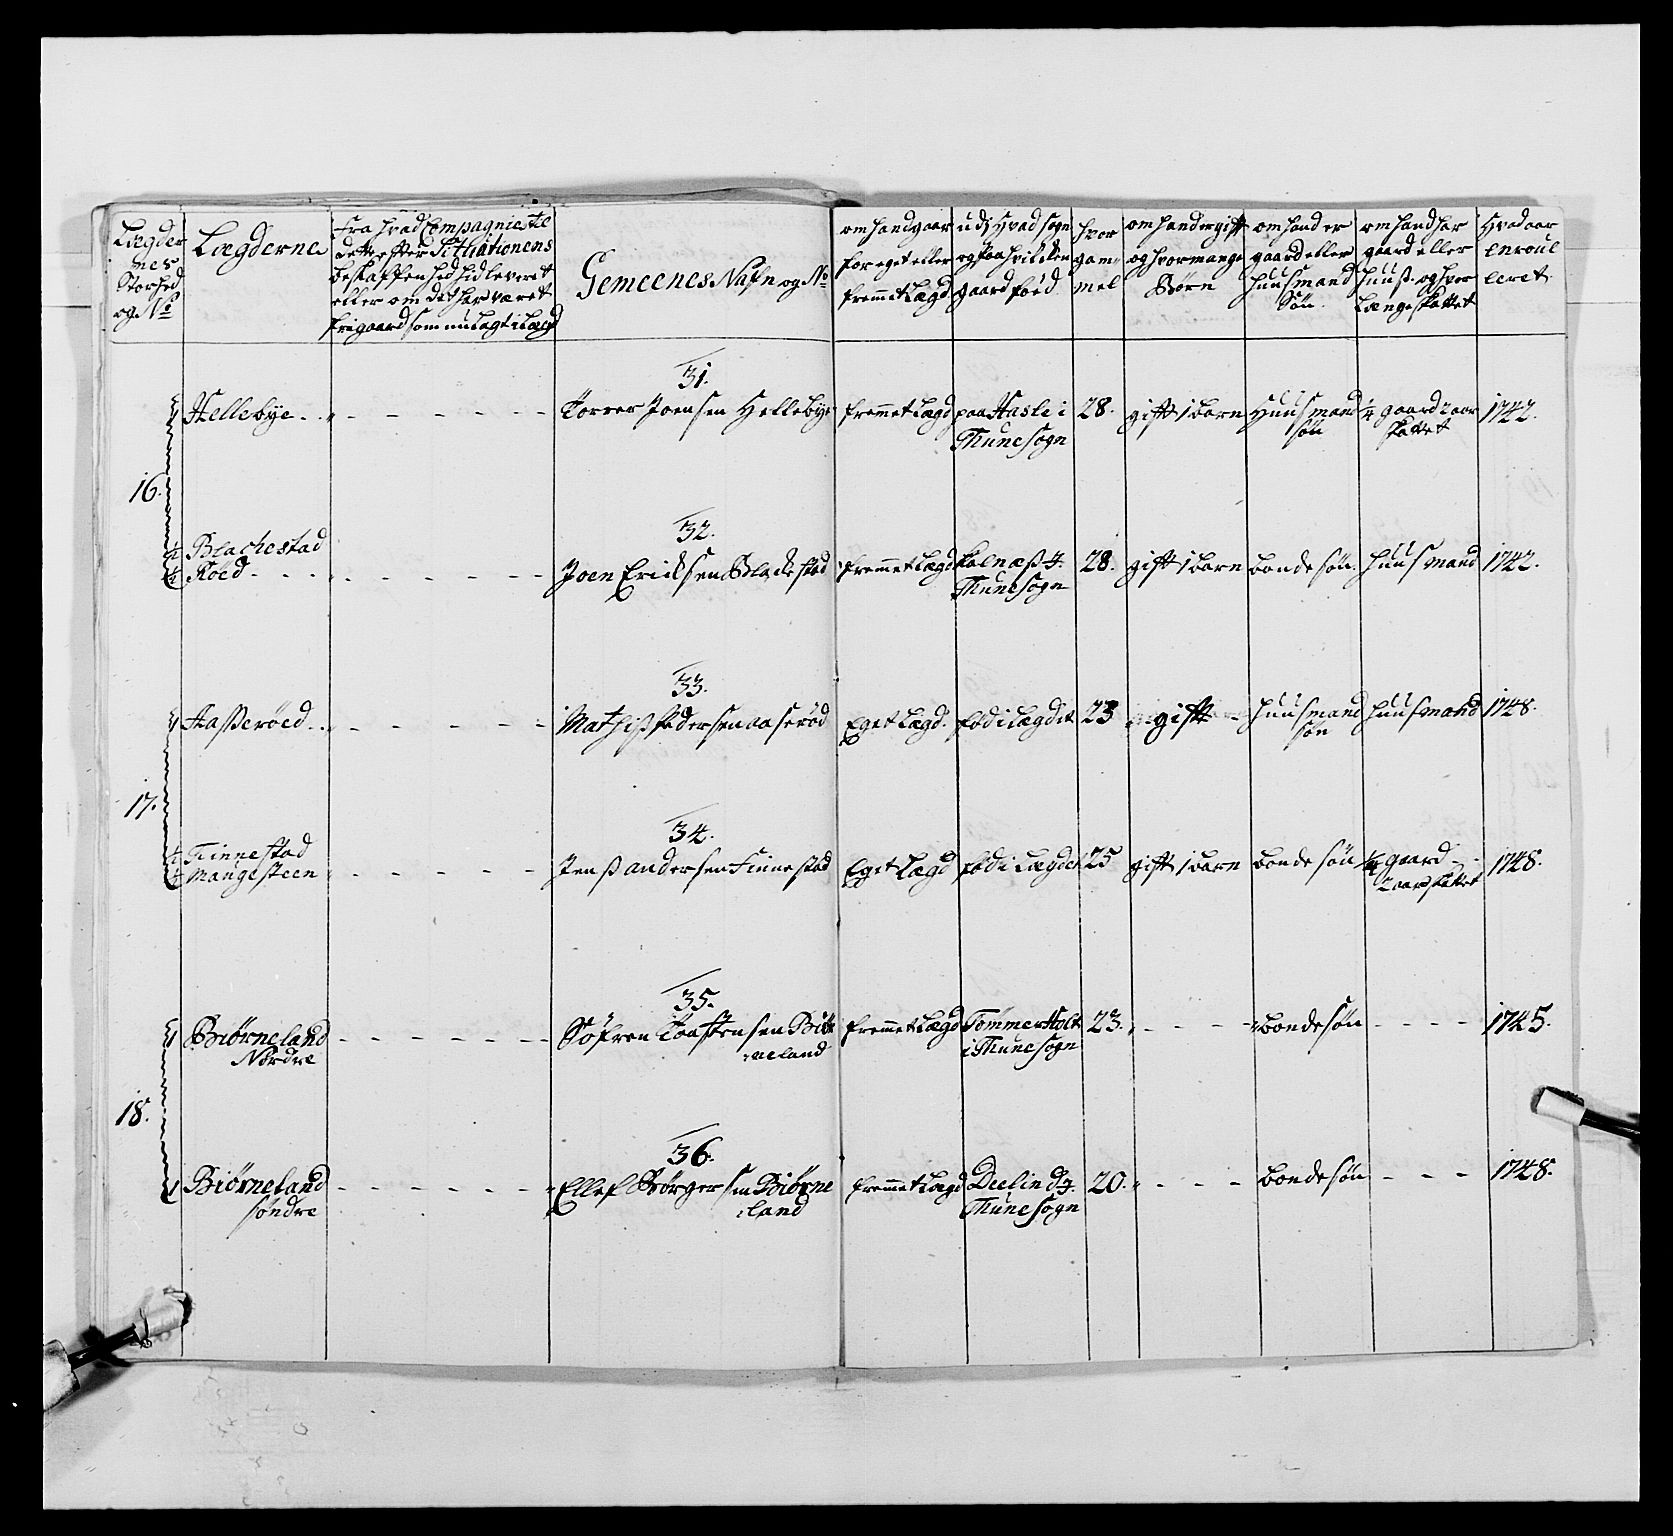 Lægder
nes
Storhed
og No
Lægderne
Fra hvad Compagnie til
dette efter Sithiationens
beskaffenhed hid leveret
eller om det har været
frigaard som nu lagt i Lægd
Gemeenes Nafn og No
om hand gaar
for eget eller
fremmet Lægd
udj hvad sogn
og paa hvilken
gaard föed
hvor
gam-
mel
om hand er gift
og hvor mange
Börn
om hand er
gaard eller
huusmand
Sön
om hand har
gaard eller
huus og hvor
Længe skattet
Hvad aar
enroul
leret
16.
1 Hellebÿe
31.
Torrer Joensen Hellebÿe
fremmet Lægd
paa Hasle i
Thune sogn
28.
gift 1 barn
Huusmand
sön
1/4 gaard 2 aar
skattet
1742.
1/2 Blachestad
1/2 Röed
32.
Joen Ericksen Blackestad
fremmet Lægd
Kalnæs J.
Thune sogn
28.
gift 1 barn
bonde sön.
huusmand
1742.
17.
1 Aasseröed
33.
Mathis Pedersen aaseröd
Eget Lægd.
föd i Lægdet
23
gift
huusmand
sön
huusmand
1748.
1/2 Finnestad
1/2 Mangesteen
34.
Jens andersen Finnestad
Eget Lægd
föd i Lægdet
25
gift 1 barn
bonde sön
1/4 gaard
2 aar skattet
1748.
18.
1 Biörneland
Nordre
35.
Söfren Taastensen Biör
neland
fremmet Lægd
Tommerholt
i Thune sogn
23.
bonde sön
1745.
1 Biörneland
söndre
36.
Ellef Börgersen Biörne
land
fremmet Lægd
Deelind J.
Thune sogn
20.
bonde sön
1748.